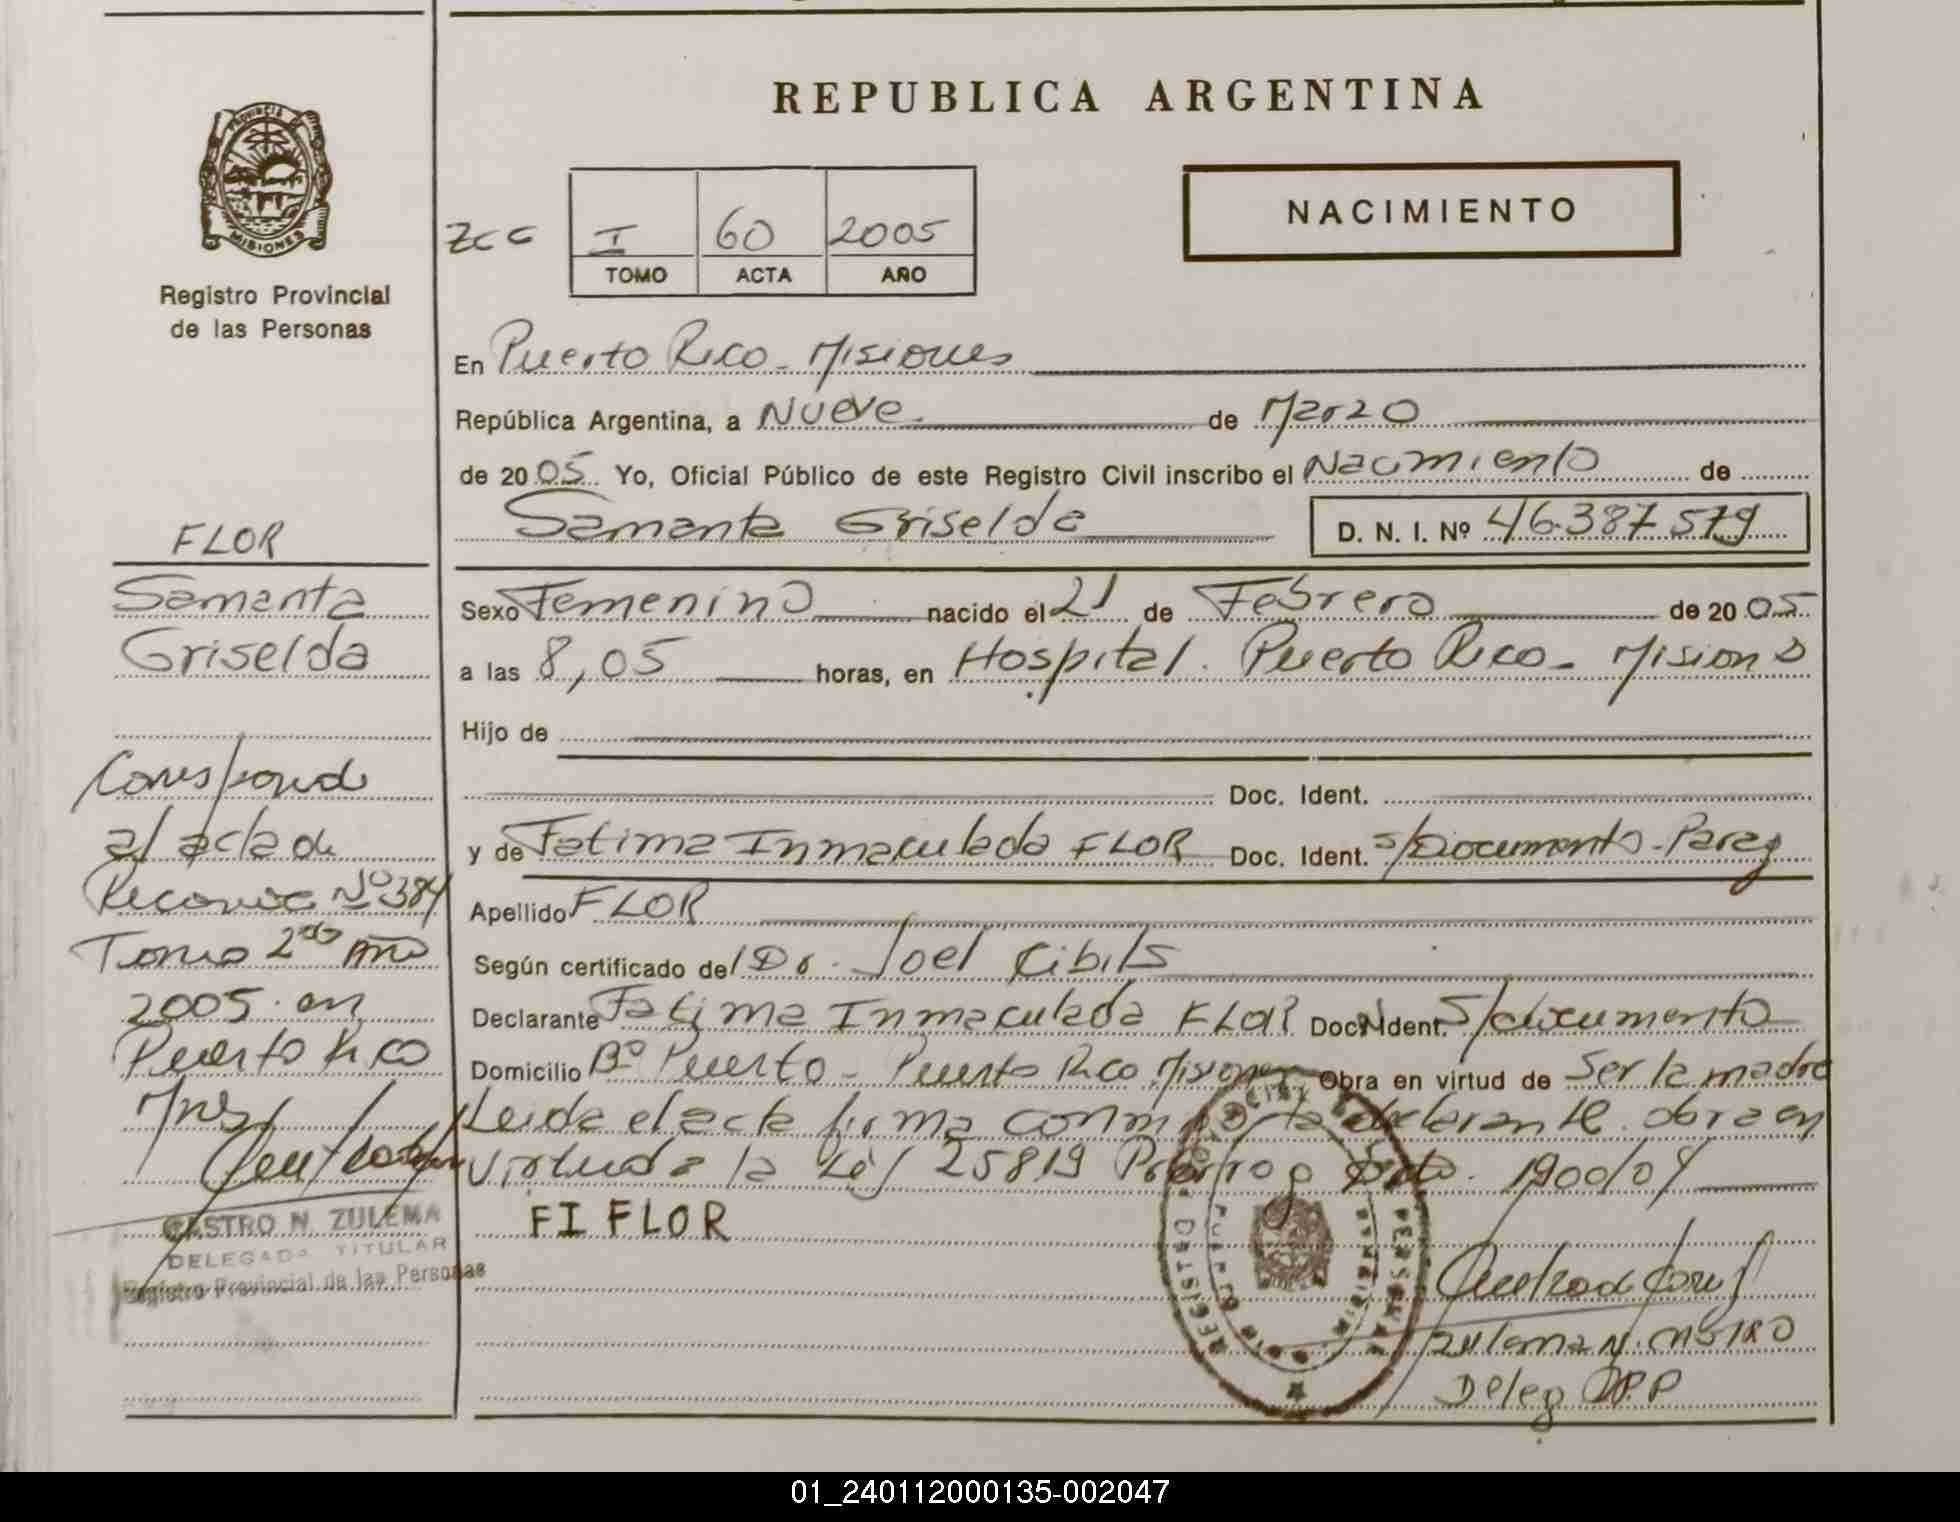 REPUBLICA ARGENTINA
MISIONES
Registro Provincial
de las Personas
I 60 2005
TOMO ACTA AÑO
NACIMIENTO
En Puerto Rico - Misiones
República Argentina, a Nueve de Marzo
de 2005 Yo, Oficial Público de este Registro Civil inscribo el Nacimiento de
Samanta Griselda D. N. I. Nº 46.387.579
Sexo Femenino nacido el 21 de Febrero de 2005
a las 8,05 horas, en Hospital. Puerto Rico - Misiones
Hijo de
Doc. Ident.
y de Fatima Inmaculada FLOR Doc. Ident. s/Documento-Parag
Apellido FLOR
Según certificado del Dr. Joel Cibils
Declarante Fatima Inmaculada FLOR Doc. Ident. S/documento
Domicilio Bº Puerto - Puerto Rico Misiones Obra en virtud de Ser la madre
Leida el acta firma conmigo la declarante. obra en
virtud de la Ley 25819 Prorrog Dcto. 1900/04
FI FLOR
Zulema N. CASTRO
Deleg RPP
FLOR
Samanta
Griselda
Corresponde
al acta de
Reconoc Nº 384
Tomo 2do Año
2005 en
Puerto Rico
Mnes
CASTRO N. ZULEMA
DELEGADA TITULAR
Registro Provincial de las Personas
01_240112000135-002047